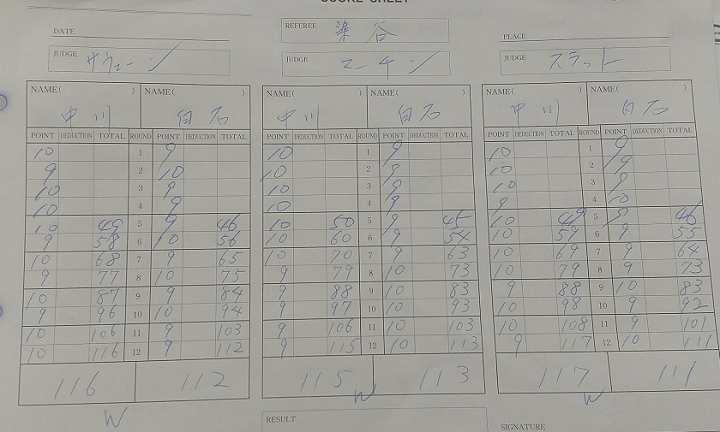 SCORE SHEET
DATE
REFEREE 染谷
PLACE
JUDGE サウェーン
JUDGE
JUDGE スラット
NAME( ) NAME( ) NAME( ) NAME( ) NAME( ) NAME( )
中川 白石 中川 白石 中川 白石
POINT DEDUCTION TOTAL ROUND POINT DEDUCTION TOTAL POINT DEDUCTION TOTAL ROUND POINT DEDUCTION TOTAL POINT DEDUCTION TOTAL ROUND POINT DEDUCTION TOTAL
10 1 9 10 1 9 10 1 9
9 2 10 10 2 9 10 2 9
10 3 9 10 3 9 10 3 9
10 4 9 10 4 9 9 4 10
10 49 5 9 46 10 50 5 9 45 10 49 5 9 46
9 58 6 10 56 10 60 6 9 54 10 59 6 9 55
10 68 7 9 65 10 70 7 9 63 10 69 7 9 64
9 77 8 10 75 9 79 8 10 73 10 79 8 9 73
10 87 9 9 84 9 88 9 10 83 9 88 9 10 83
9 96 10 10 94 9 97 10 10 93 10 98 10 9 92
10 106 11 9 103 9 106 11 10 103 10 108 11 9 101
10 116 12 9 112 9 115 12 10 113 9 117 12 10 111
116 112 115 113 117 111
W W W
RESULT
SIGNATURE